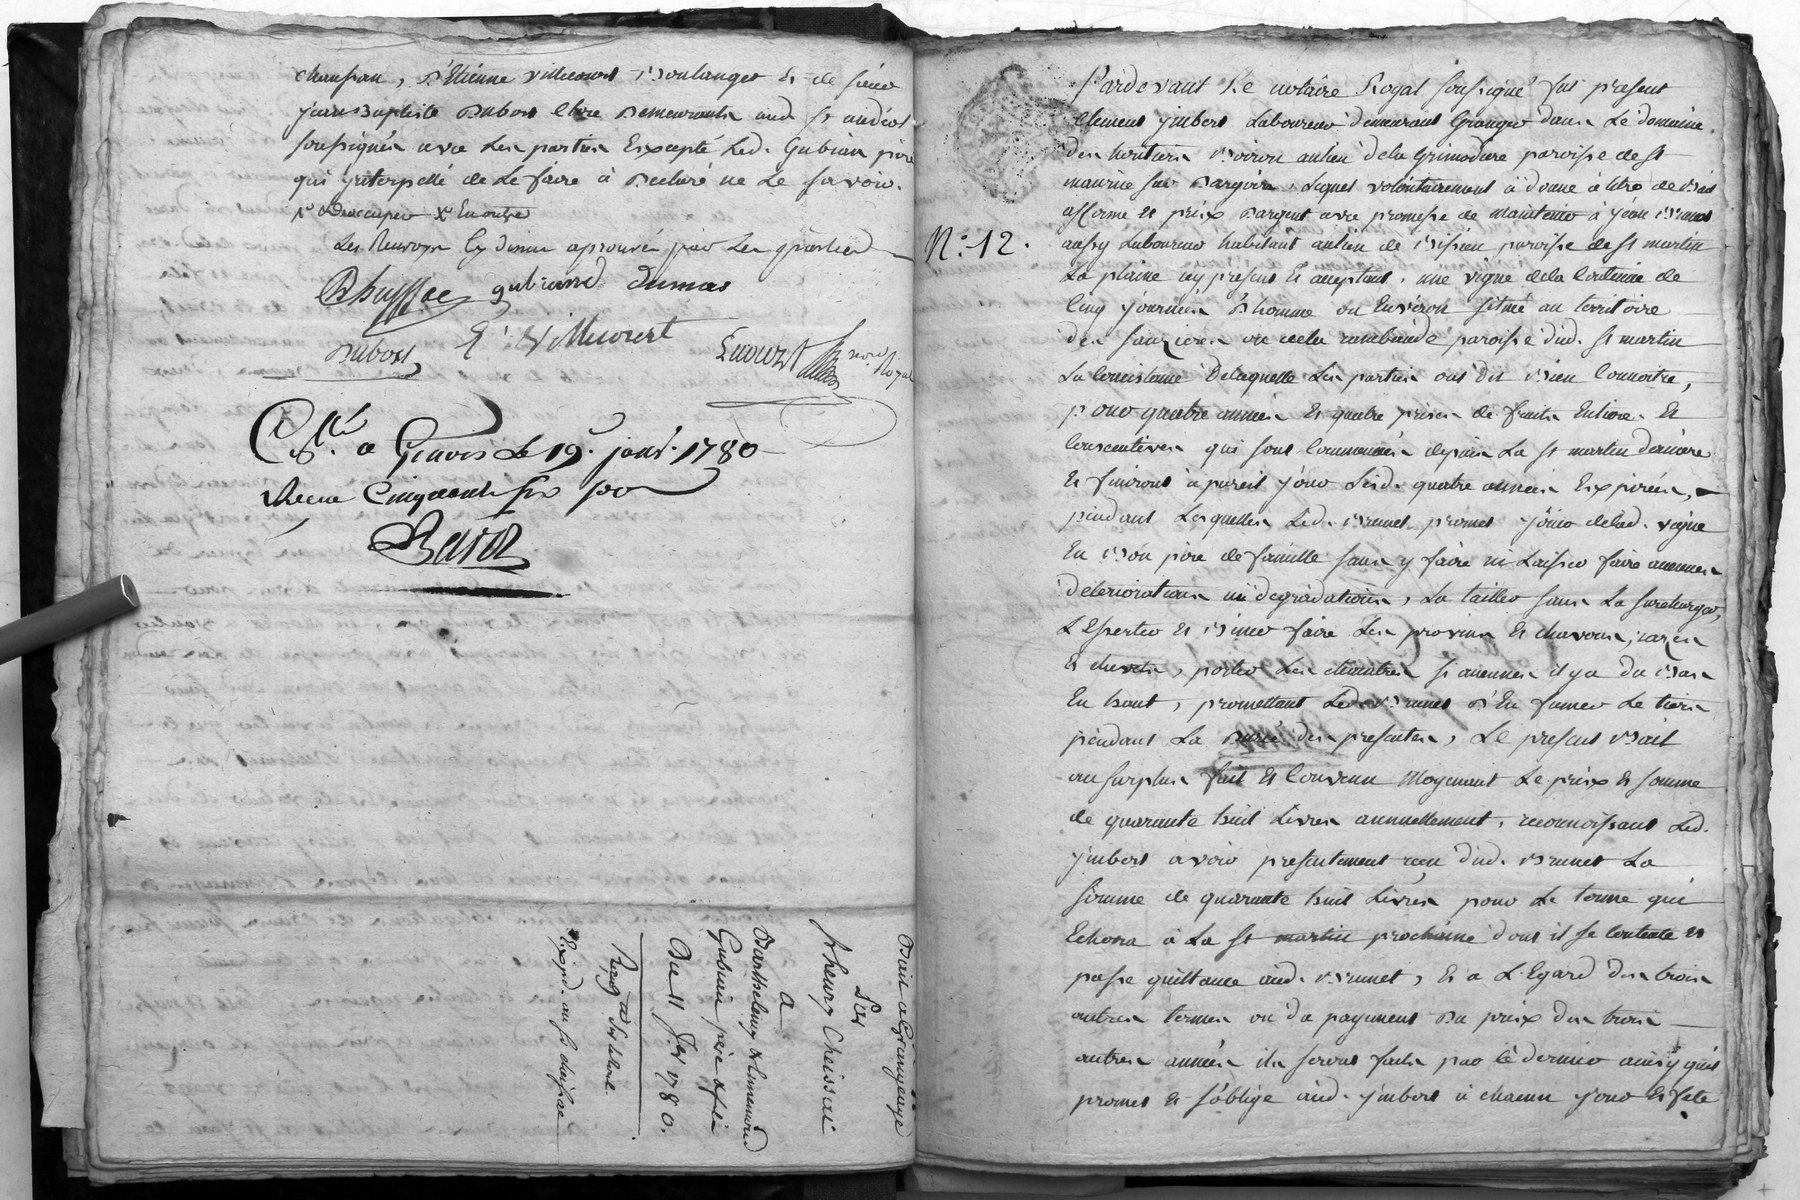 chaussan, s.r Etienne villecourt Boulanger et de sieur
jean Baptiste Dubois clerc demeurants aud. st andéol
soussignés avec les parties Excepté led. Gubian père
qui jnterpellé de le faire a declaré ne le savoir.
d'occuper x En outre
Les Renvoys cy dessus aprouvés par les parties
gubiand dumas
Dubois E. Villecourt
not. Royal
C.llé a Givors le 19. janv. 1780
Recu Cinquante six so
Bail a Grangeage
Par
s. henry Chuissac
A
Barthelemy & Clemenson
Gubian père & fils
Du 11 J.er 1780.
N.o 12.
Pardevant Le notaire Royal soussigné fut présent
Clement jmbert Laboureur demeurant Granger dans Le domaine
des heritiers Boiron au lieu de la Grimodiere paroisse de st
maurice sur Dargoire, Lequel volontairement a donné a titre de Bail
afferme et prix d'argent avec promesse de maintenir à jean Brunet
aussy Laboureur habitant au lieu de Bissieu paroisse de st martin
La plaine icy present et acceptant, une vigne de la Contenue de
Cinq journées d'homme ou Environ située au territoire
des ou de la rambaude paroisse dud. st martin
La Consistance de laquelle Les parties ont dit Bien Connoitre,
pour quatre années et quatre prises de fruits Entiere et
Consecutives qui sont Commencées depuis La st martin derniere
et finiront à pareil jour Lesd. quatre années Expirées,
pendant Lesquelles Led. Brunet promet jouir de lad. vigne
En Bon père de famille sans y faire ni Laisser faire aucunes
deteriorations ni degradations, La tailler sans La surcharger,
et Biner faire Les provins et chavons, razes
et chevets, porter Les chaintres si aucunes il y a du Bas
En haut, promettant Led. Brunet d'En fumer Le tiers
pendant La durée des presentes, Le present Bail
au surplus fait et Convenu Moyennant Le prix et somme
de quarante huit Livres annuellement, reconnoissant Led.
jmbert avoir presentement reçu dud. Brunet La
somme de quarante huit Livres pour Le terme qui
Echera à La st martin prochaine dont il se Contente et
passe quittance aud. Brunet, et a L'Egard des trois
autres termes ou du payement du prix des trois
autres années ils seront faits par ce dernier ainsy qu'il
promet et s'oblige aud. jmbert à chacun jour et fete